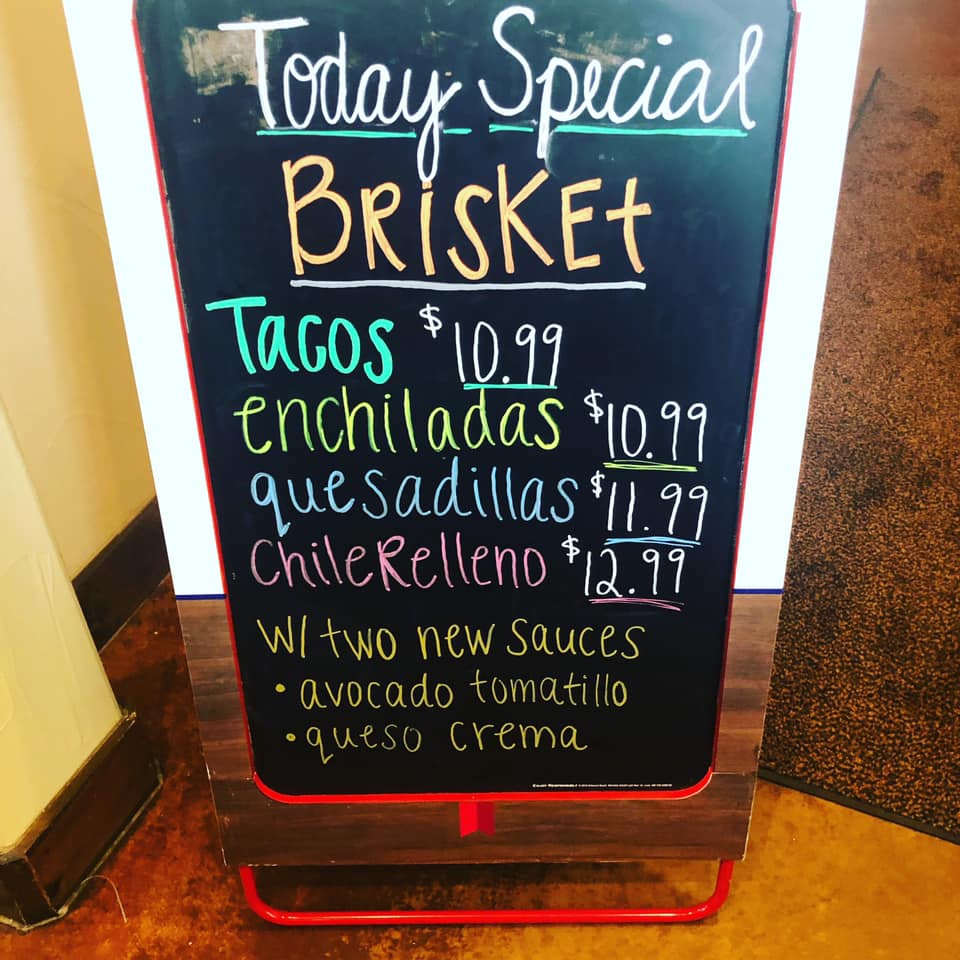 Today Special
BRiSKEt
Tacos $10.99
enchiladas $10.99
quesadillas $11.99
ChileRelleno $12.99
W/ two new sauces
• avocado tomatillo
• queso crema
ENJOY RESPONSIBLY